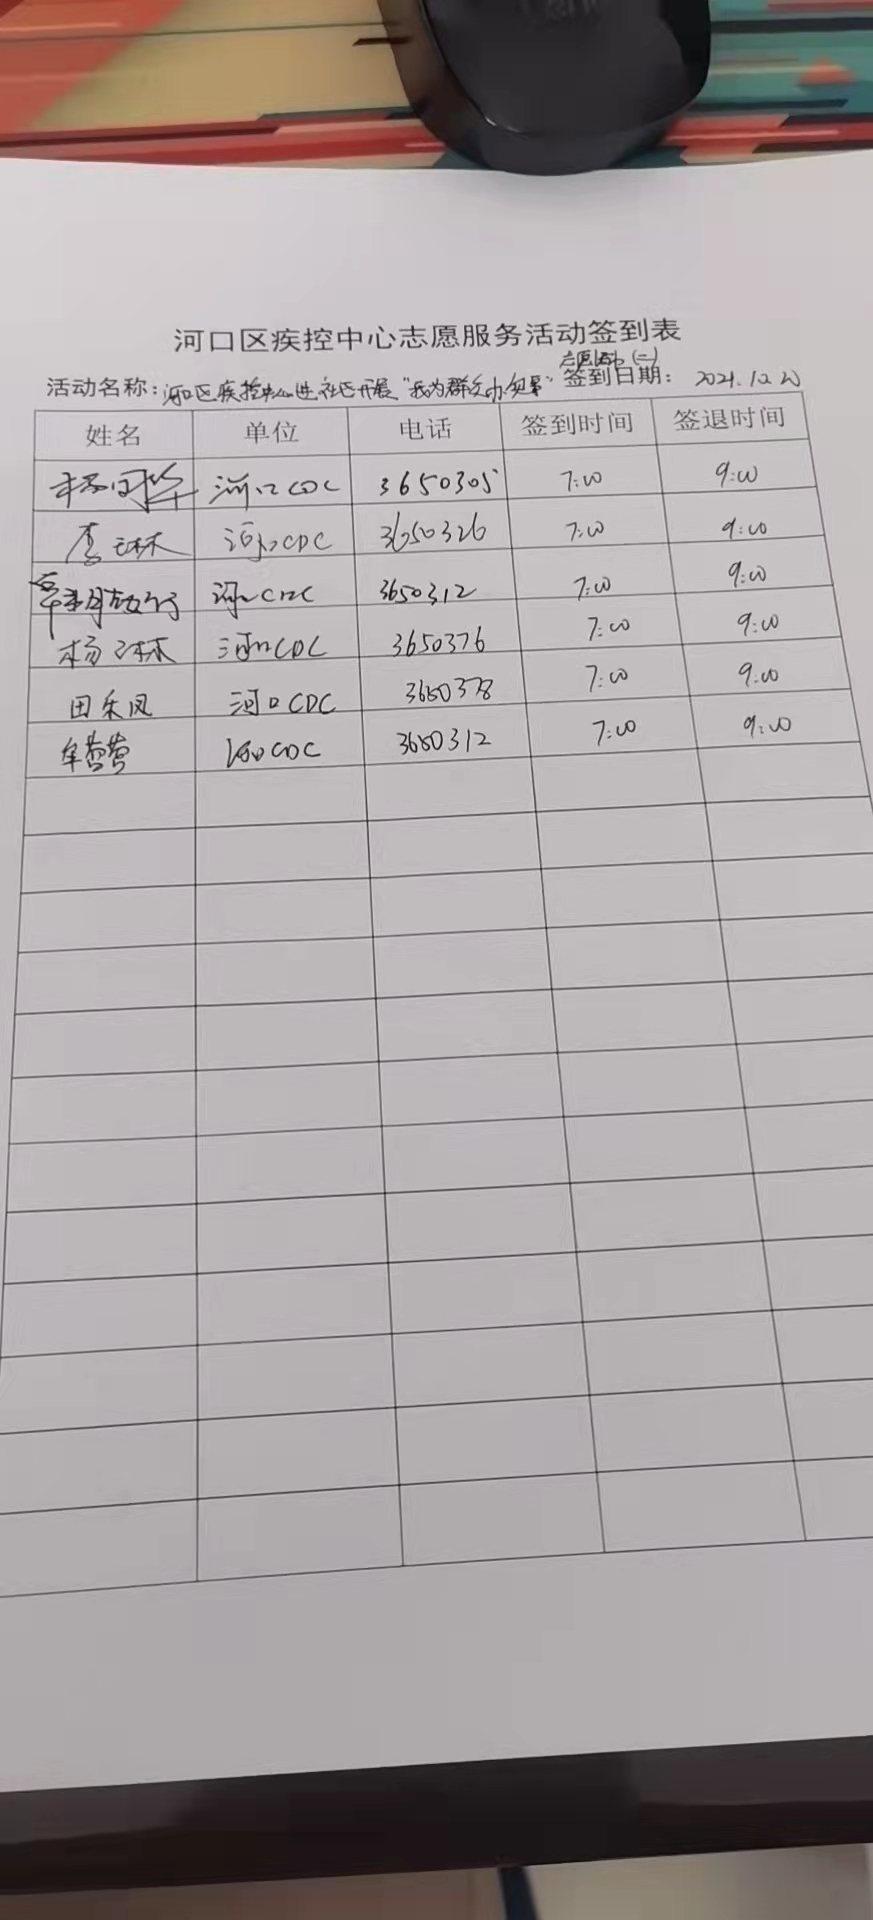 河口区疾控中心志愿服务活动签到表
志愿活动(二)
活动名称:河口区疾控中心进社区开展"我为群众办实事" 签到日期: 2021.10.20
姓名 单位 电话 签到时间 签退时间
杨国华 河口CDC 3650305 7:00 9:00
李琳 河口CDC 3650326 7:00 9:00
河口CDC 3650312 7:00 9:00
杨琳 河口CDC 3650376 7:00 9:00
田乐凤 河口CDC 3650378 7:00 9:00
牟营营 河口CDC 3650312 7:00 9:00